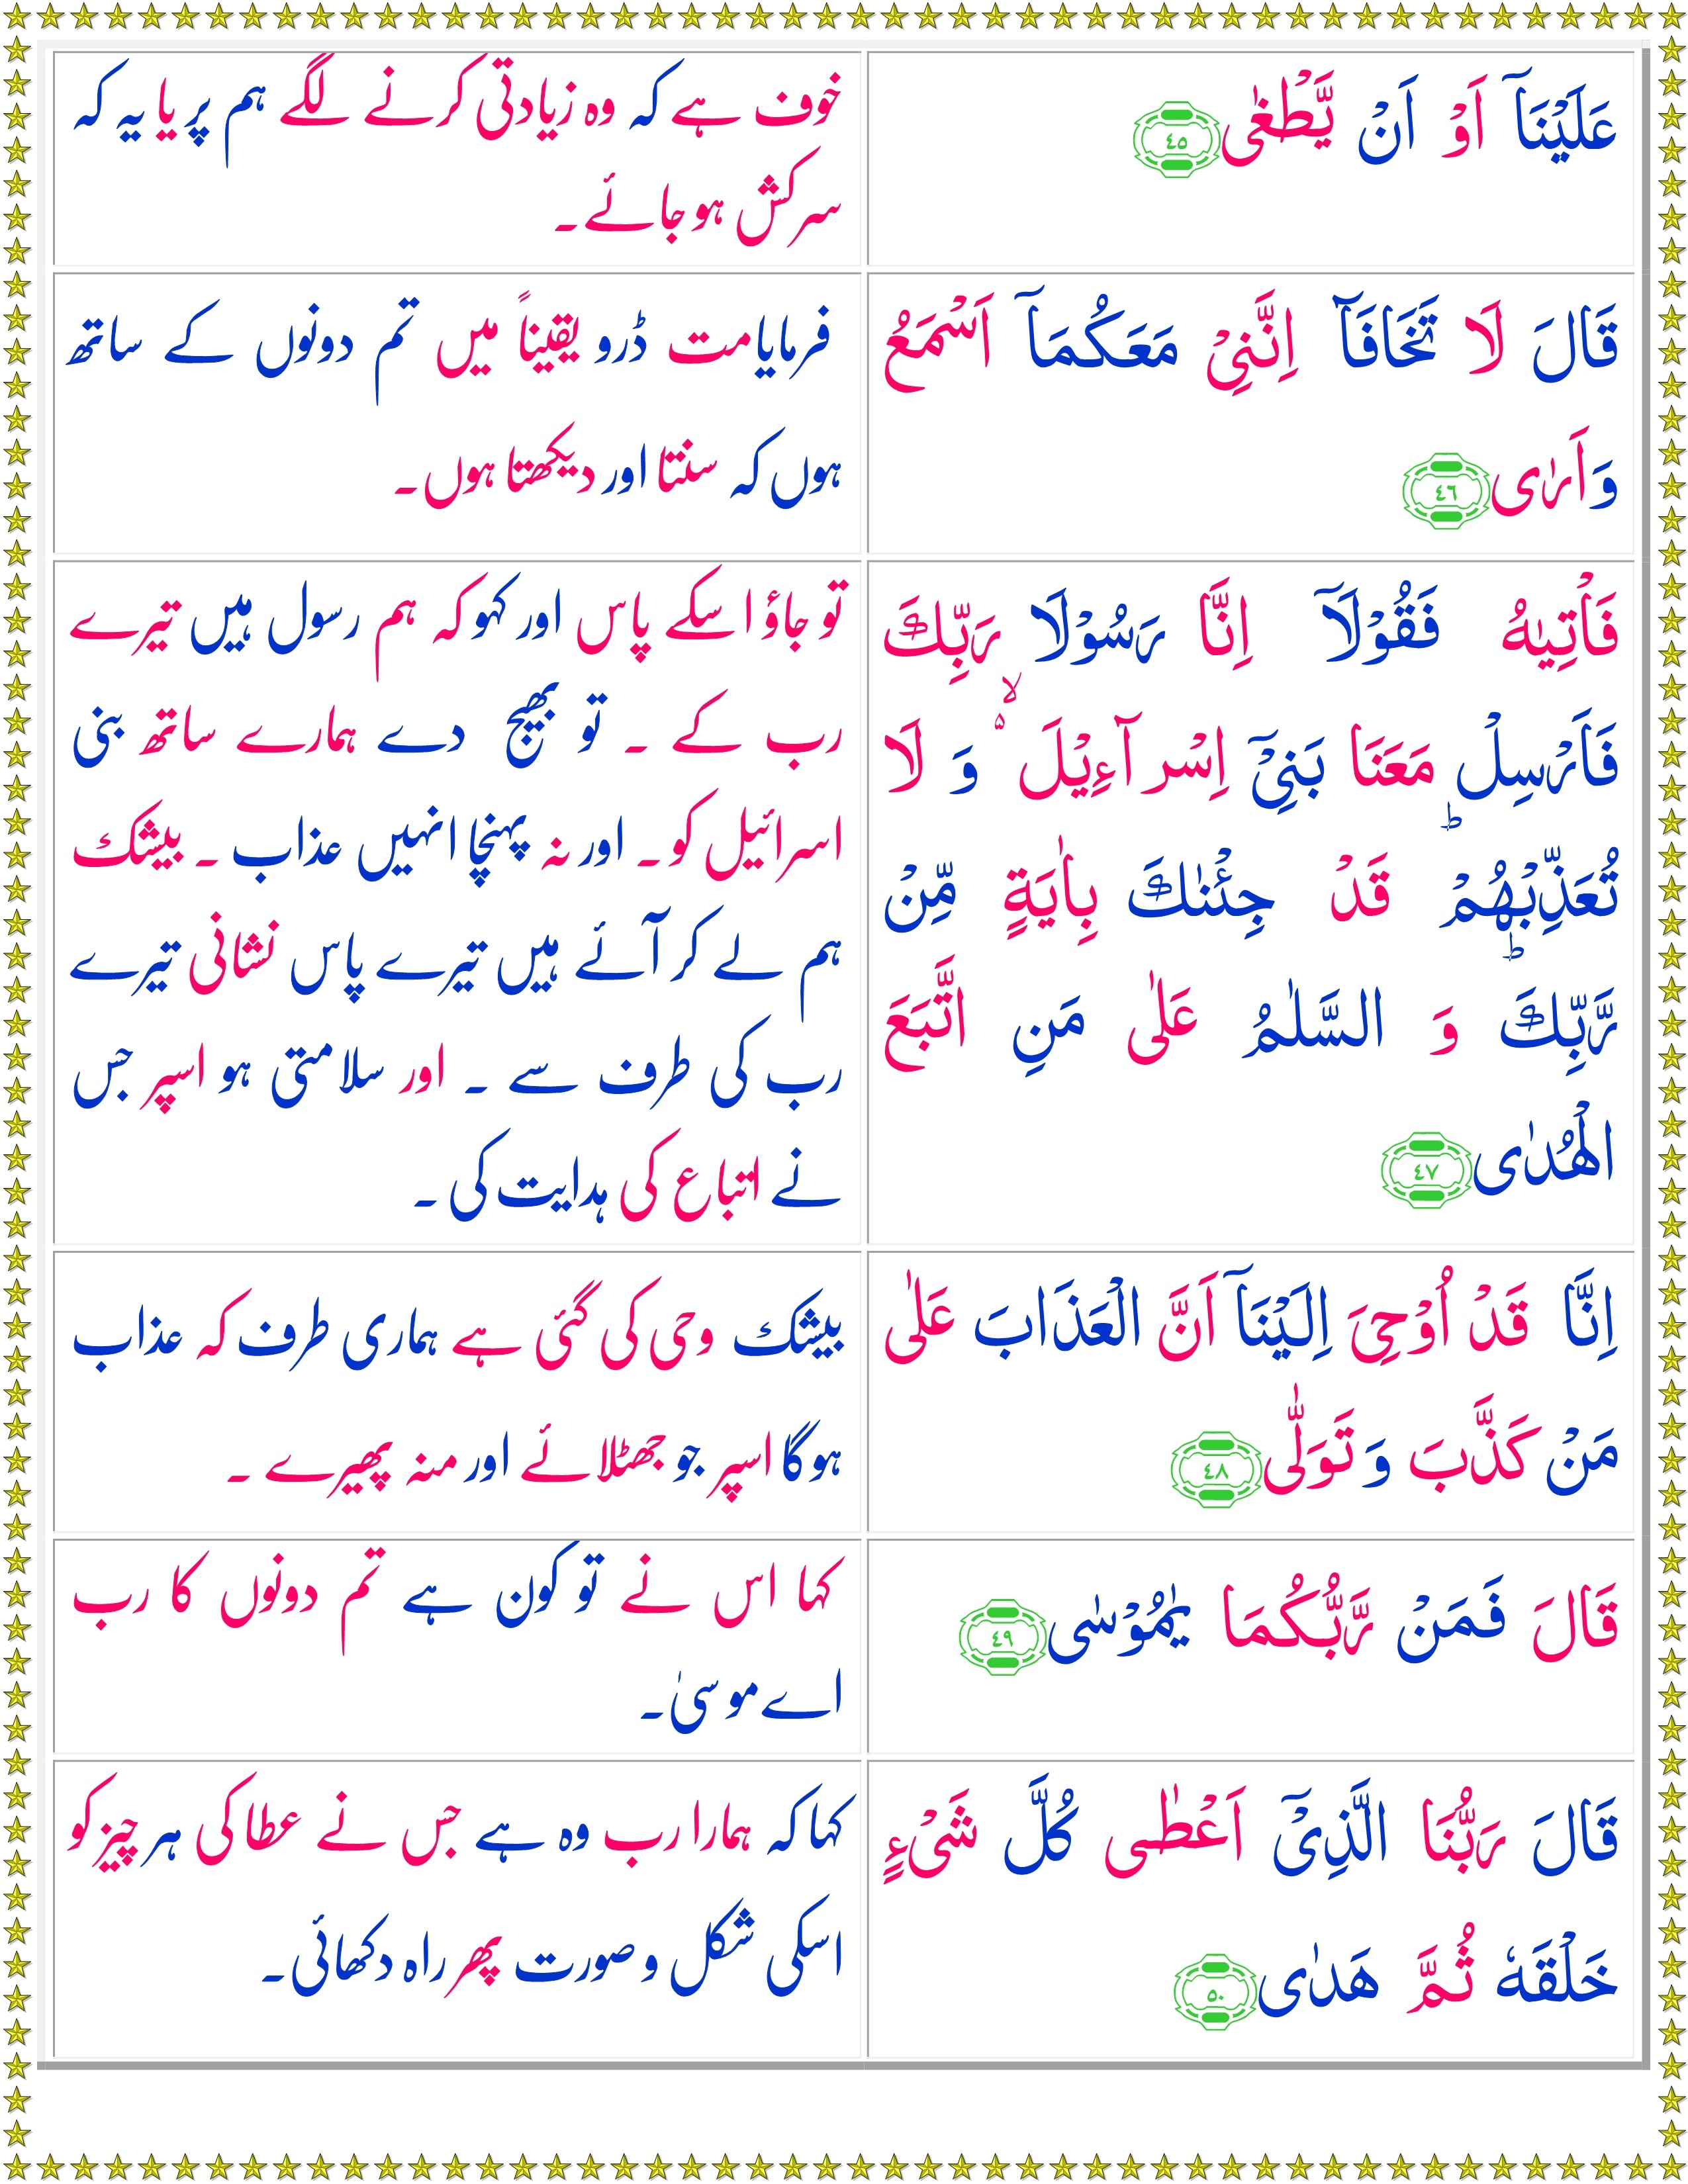 عَلَيْنَآ اَوْ اَنْ يَّطْغٰى ﴿٤٥﴾
خوف ہے کہ وہ زیادتی کرنے لگے ہم پر یا یہ کہ
سرکش ہو جائے۔
قَالَ لَا تَخَافَآ اِنَّنِىْ مَعَكُمَآ اَسْمَعُ
وَاَرٰى ﴿٤٦﴾
فرمایا مت ڈرو یقیناً میں تم دونوں کے ساتھ
ہوں کہ سنتا اور دیکھتا ہوں۔
فَاْتِيٰهُ فَقُوْلَاۤ اِنَّا رَسُوْلَا رَبِّكَ
فَاَرْسِلْ مَعَنَا بَنِىْۤ اِسْرآءِيْلَ ۙ وَ لَا
تُعَذِّبْهُمْ ؕ قَدْ جِئْنٰكَ بِاٰيَةٍ مِّنْ
رَّبِّكَ ؕ وَ السَّلٰمُ عَلٰى مَنِ اتَّبَعَ
الْهُدٰى ﴿٤٧﴾
تو جاؤ اسکے پاس اور کہو کہ ہم رسول ہیں تیرے
رب کے ۔ تو بھیج دے ہمارے ساتھ بنی
اسرائیل کو۔ اور نہ پہنچا انہیں عذاب ۔ بیشک
ہم لے کر آئے ہیں تیرے پاس نشانی تیرے
رب کی طرف سے ۔ اور سلامتی ہو اسپر جس
نے اتباع کی ہدایت کی ۔
اِنَّا قَدْ اُوْحِىَ اِلَيْنَآ اَنَّ الْعَذَابَ عَلٰى
مَنْ كَذَّبَ وَ تَوَلّٰى ﴿٤٨﴾
بیشک وحی کی گئی ہے ہماری طرف کہ عذاب
ہوگا اسپر جو جھٹلائے اور منہ پھیرے ۔
قَالَ فَمَنْ رَّبُّكُمَا يٰمُوْسٰى ﴿٤٩﴾
کہا اس نے تو کون ہے تم دونوں کا رب
اے موسیٰ۔
قَالَ رَبُّنَا الَّذِىْۤ اَعْطٰى كُلَّ شَىْءٍ
خَلْقَهٗ ثُمَّ هَدٰى ﴿٥٠﴾
کہا کہ ہمارا رب وہ ہے جس نے عطا کی ہر چیز کو
اسکی شکل و صورت پھر راہ دکھائی۔